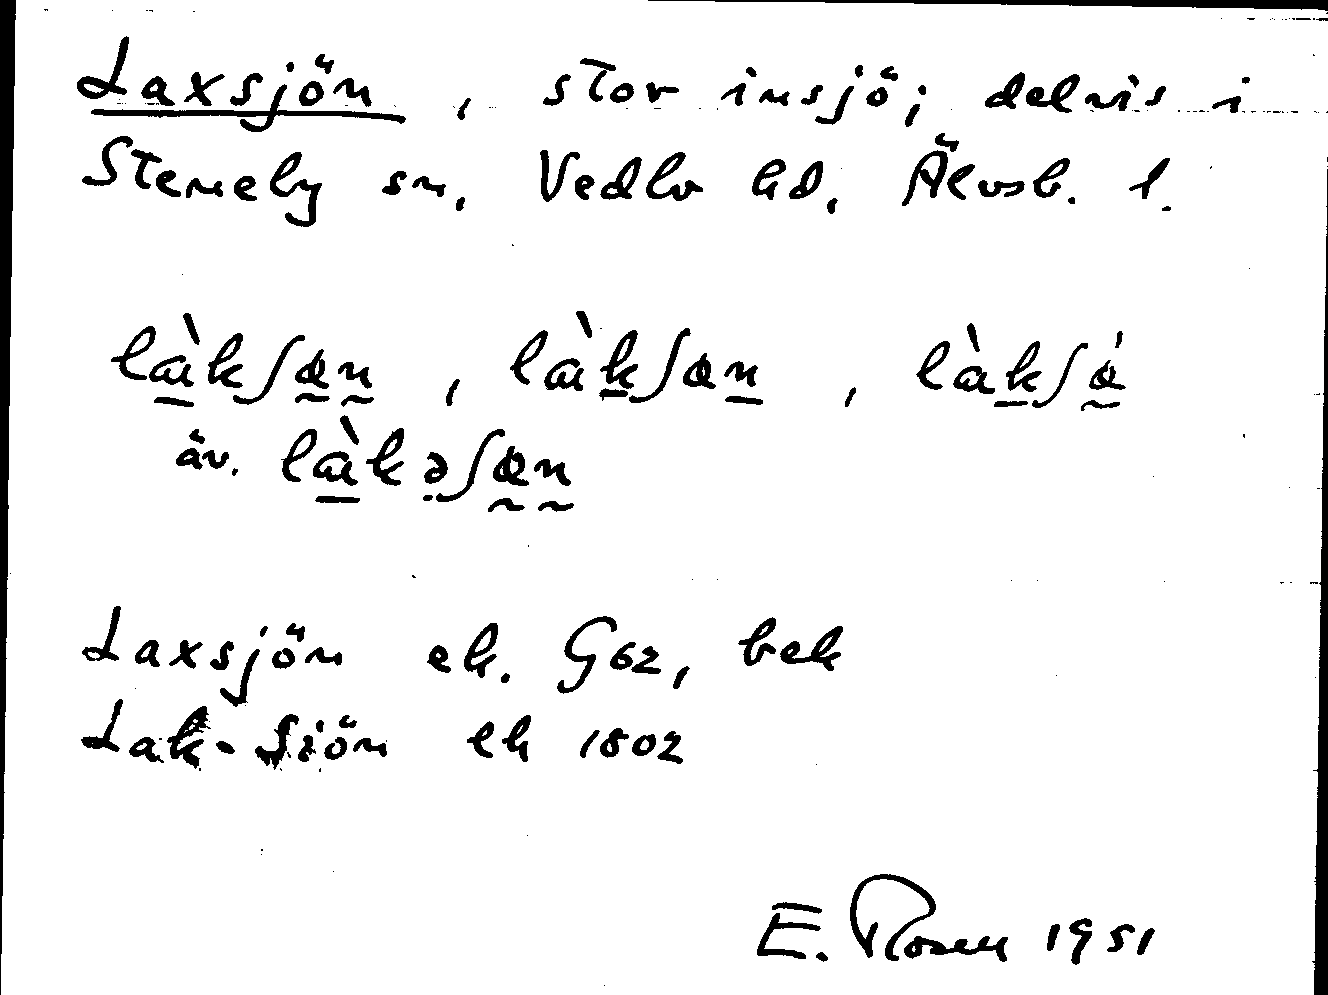 Laxsjön, stor insjö; delvis i
Steneby sn, Vedbo hd, Älvsb. l.
làkʃœn, làkʃœn, làkʃœ́
äv. làkəʃœn
Laxsjön ek. G62, bek
Lak-Siön ek 1802
E. Rosen 1951